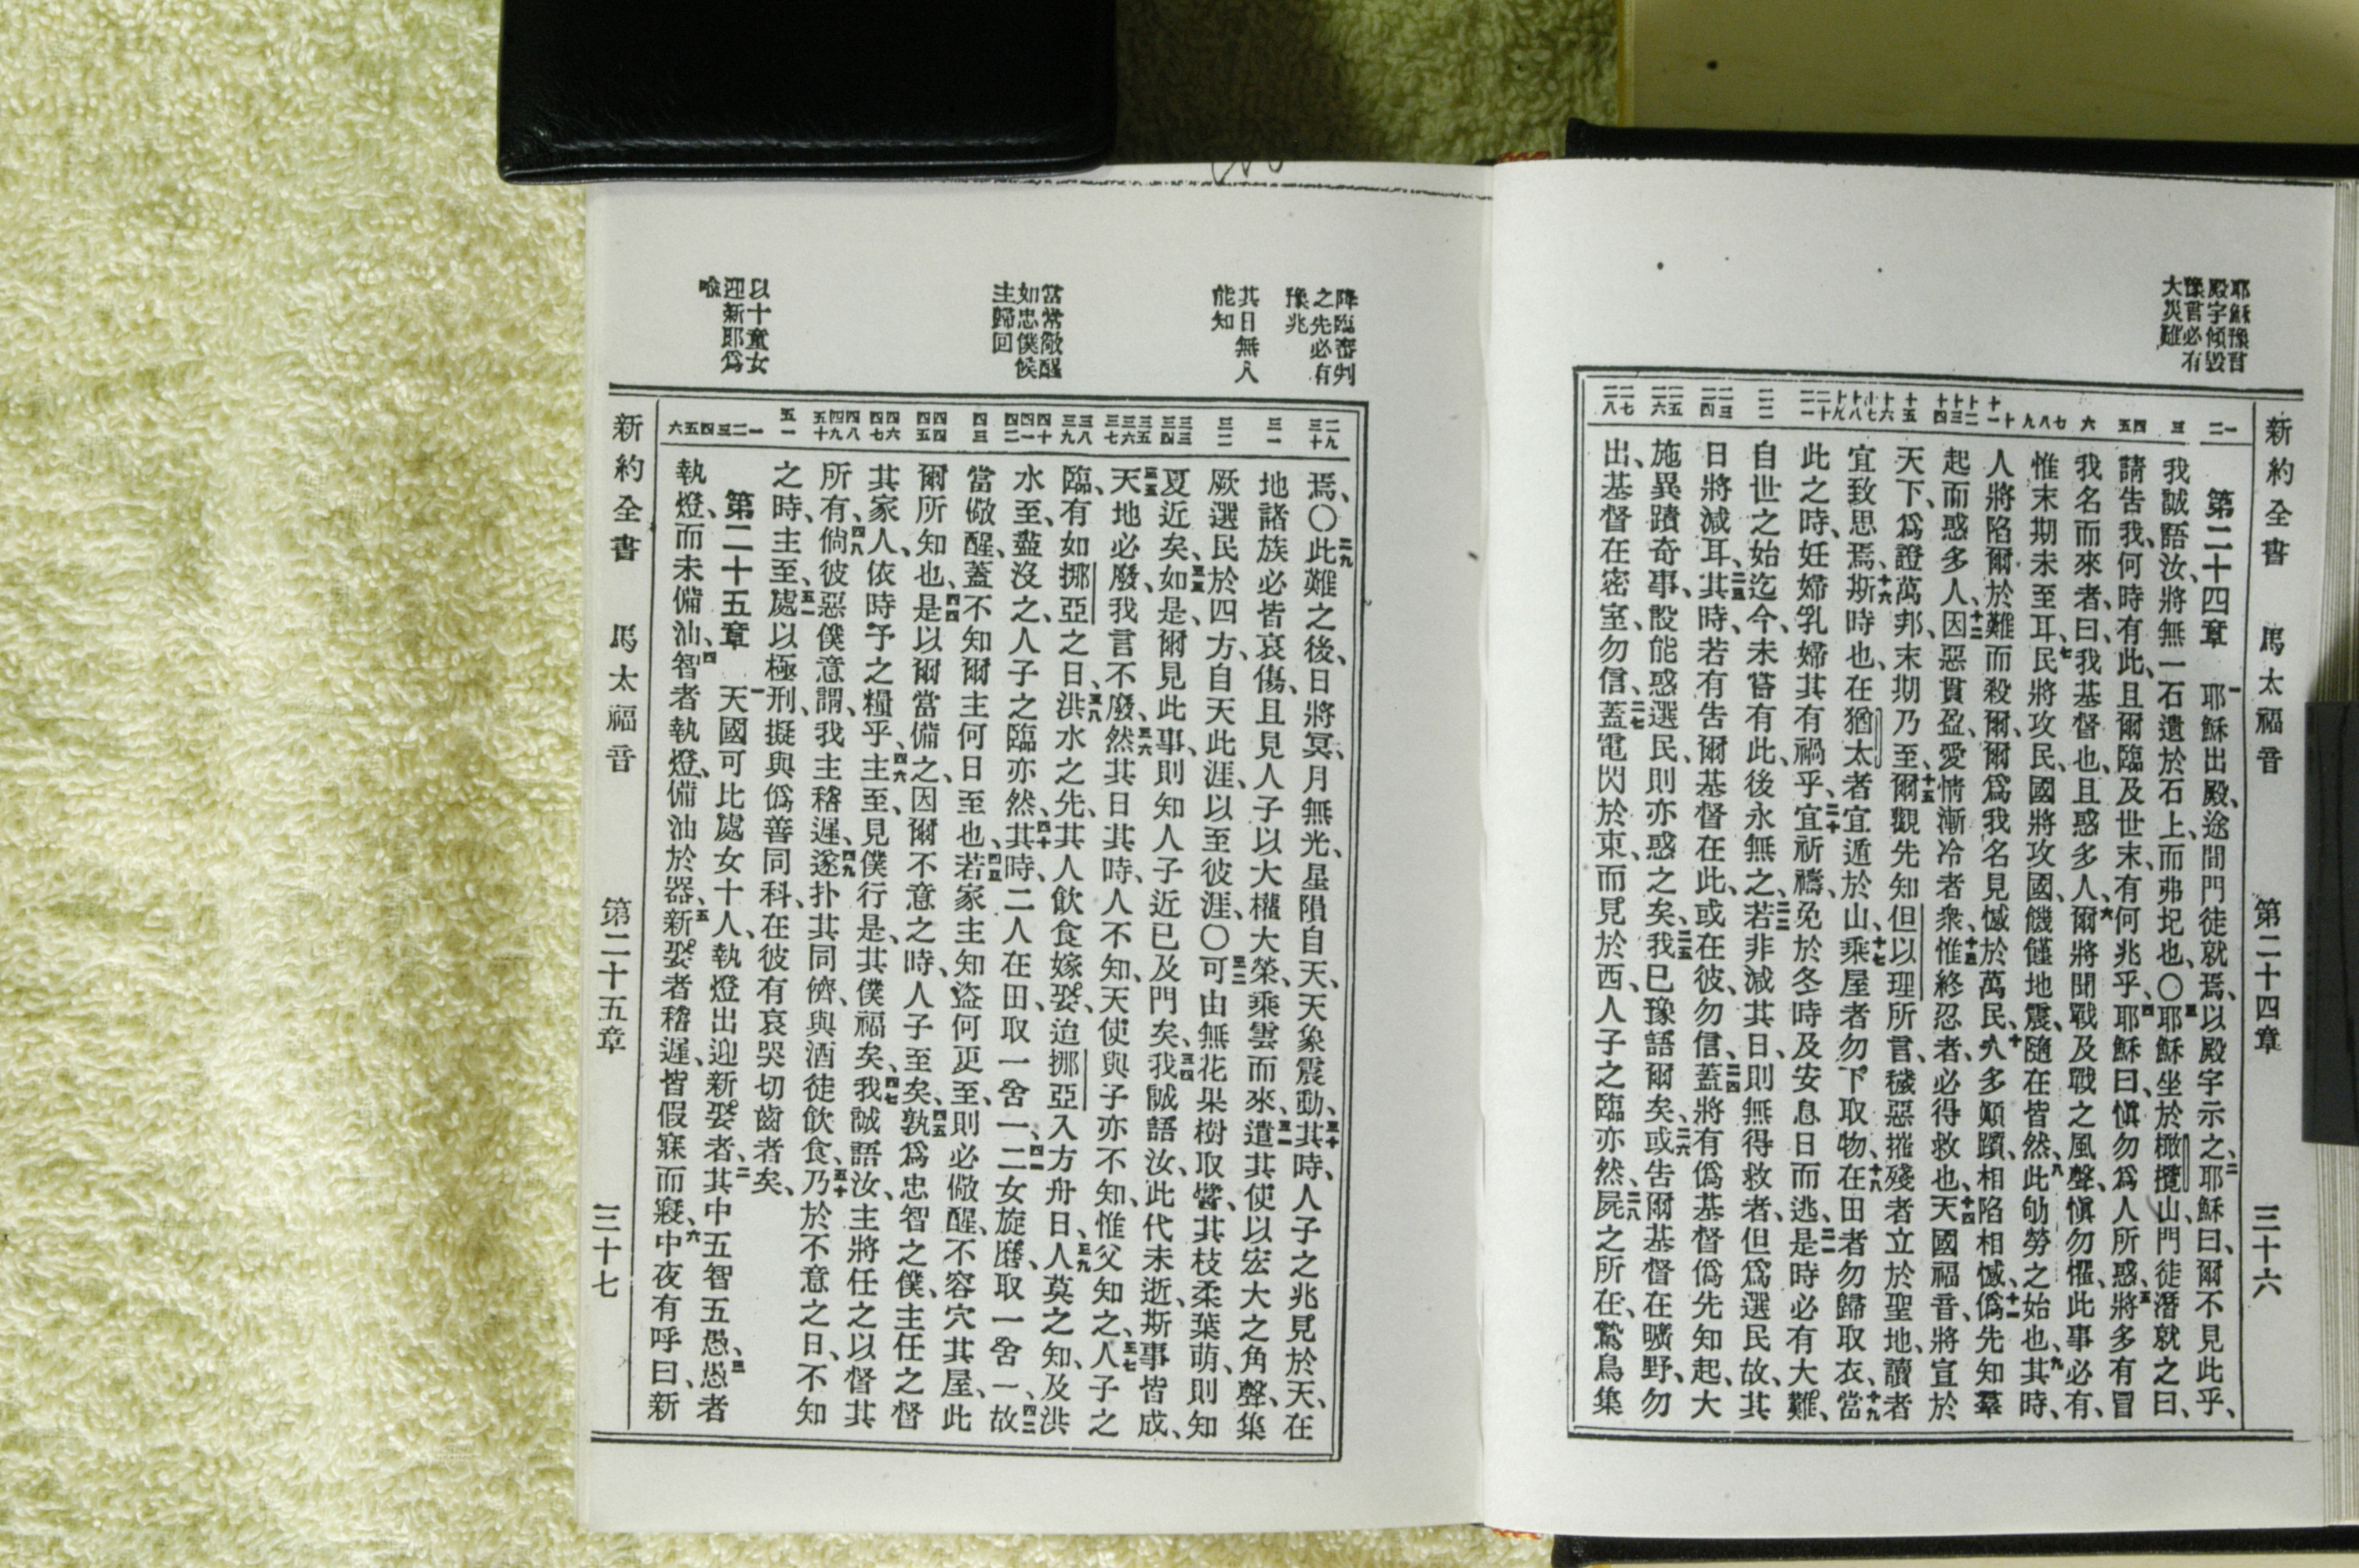 耶穌豫言
殿宇傾毀
豫言必有
大災難
新約全書 馬太福音 第二十四章 三十六
一 二 三 四 五 六 七 八 九 十 十一 十二 十三 十四 十五 十六 十七 十八 十九 二十 二一 二二 二三 二四 二五 二六 二七 二八
第二十四章 一耶穌出殿、途間門徒就焉、以殿宇示之、二耶穌曰、爾不見此乎、
我誠語汝、將無一石遺於石上、而弗圮也、〇三耶穌坐於橄欖山、門徒潛就之曰、
請告我、何時有此、且爾臨及世末、有何兆乎、四耶穌曰、愼勿爲人所惑、五將多有冒
我名而來者、曰、我基督也、且惑多人、六爾將聞戰及戰之風聲、愼勿懼、此事必有、
惟末期未至耳、七民將攻民、國將攻國、饑饉地震、隨在皆然、八此劬勞之始也、九其時、
人將陷爾於難而殺爾、爾爲我名見憾於萬民、十人多顚躓、相陷相憾、十一僞先知羣
起而惑多人、十二因惡貫盈、愛情漸冷者衆、十三惟終忍者、必得救也、十四天國福音、將宣於
天下、爲證萬邦、末期乃至、十五爾觀先知但以理所言、穢惡摧殘者立於聖地、讀者
宜致思焉、十六斯時也、在猶太者宜遁於山、十七乘屋者勿下取物、十八在田者勿歸取衣、十九當
此之時、妊婦乳婦其有禍乎、二十宜祈禱、免於冬時及安息日而逃、二一是時必有大難、
自世之始迄今、未嘗有此、後永無之、二二若非減其日、則無得救者、但爲選民故、其
日將減耳、二三其時、若有告爾基督在此、或在彼、勿信、二四蓋將有僞基督僞先知起、大
施異蹟奇事、設能惑選民、則亦惑之矣、二五我已豫語爾矣、二六或告爾基督在曠野、勿
出、基督在密室、勿信、二七蓋電閃於東、而見於西、人子之臨亦然、二八屍之所在、鷙鳥集
降臨審判
之先必有
豫兆
其日無人
能知
當常儆醒
如忠僕候
主歸回
以十童女
迎新郎爲
喻
二九 三十 三一 三二 三三 三四 三五 三六 三七 三八 三九 四十 四一 四二 四三 四四 四五 四六 四七 四八 四九 五十 五一 一 二 三 四 五 六
焉、〇二九此難之後、日將冥、月無光、星隕自天、天象震動、三十其時、人子之兆見於天、在
地諸族必皆哀傷、且見人子以大權大榮、乘雲而來、三一遣其使以宏大之角聲、集
厥選民於四方、自天此涯、以至彼涯、〇三二可由無花果樹取譬、其枝柔葉萌、則知
夏近矣、三三如是、爾見此事、則知人子近已及門矣、三四我誠語汝、此代未逝、斯事皆成、
三五天地必廢、我言不廢、三六然其日其時、人不知、天使與子亦不知、惟父知之、三七人子之
臨、有如挪亞之日、三八洪水之先、其人飲食嫁娶、迨挪亞入方舟日、三九人莫之知、及洪
水至、盡沒之、人子之臨亦然、四十其時、二人在田、取一舍一、四一二女旋磨、取一舍一、四二故
當儆醒、蓋不知爾主何日至也、四三若家主知盜何更至、則必儆醒、不容穴其屋、此
爾所知也、四四是以爾當備之、因爾不意之時、人子至矣、四五孰爲忠智之僕、主任之督
其家人、依時予之糧乎、四六主至、見僕行是、其僕福矣、四七我誠語汝、主將任之以督其
所有、四八倘彼惡僕意謂、我主稽遲、四九遂扑其同儕、與酒徒飲食、五十乃於不意之日、不知
之時、主至、五一處以極刑、擬與僞善同科、在彼有哀哭切齒者矣、
第二十五章 一天國可比處女十人、執燈出迎新娶者、二其中五智五愚、三愚者
執燈、而未備油、四智者執燈、備油於器、五新娶者稽遲、皆假寐而寢、六中夜有呼曰、新
新約全書 馬太福音 第二十五章 三十七